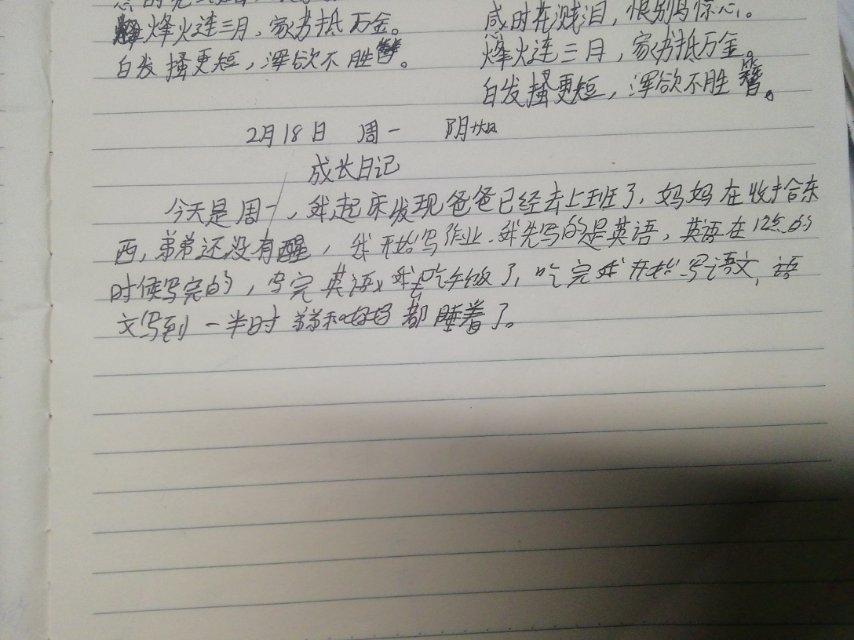 烽火连三月，家书抵万金。
白发搔更短，浑欲不胜簪。
感时花溅泪，恨别鸟惊心。
烽火连三月，家书抵万金。
白发搔更短，浑欲不胜簪。
2月18日 周一 阴
成长日记
今天是周一，我起床发现爸爸已经去上班了，妈妈在收拾东
西，弟弟还没有醒，我开始写作业。我先写的是英语，英语在12点的
时候写完的，写完英语，我去吃午饭了，吃完我开始写语文，语
文写到一半时弟弟和妈妈都睡着了。